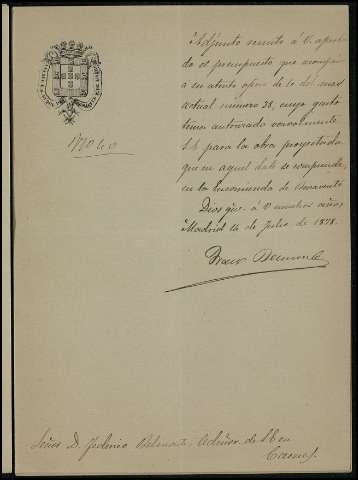 Adjunto remito á V. aproba-
do el presupuesto que acompaña
á su atento oficio de 10 del mes
actual número 28, cuyo gasto
tiene autorizado verbalmente
S.E. para la obra proyectada
que en aquel dato se comprende,
en la Encomienda de Benavente
Dios gue. á V. muchos años
Madrid 14 de Julio de 1878.
Señor D. Federico Belmonte, Admor. de S.E. en
Cáceres.